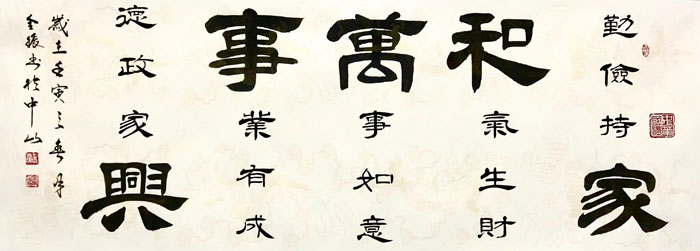 勤儉持家
和氣生財
萬事如意
事業有成
德政家興
歲在壬寅之春月
金振书於中山